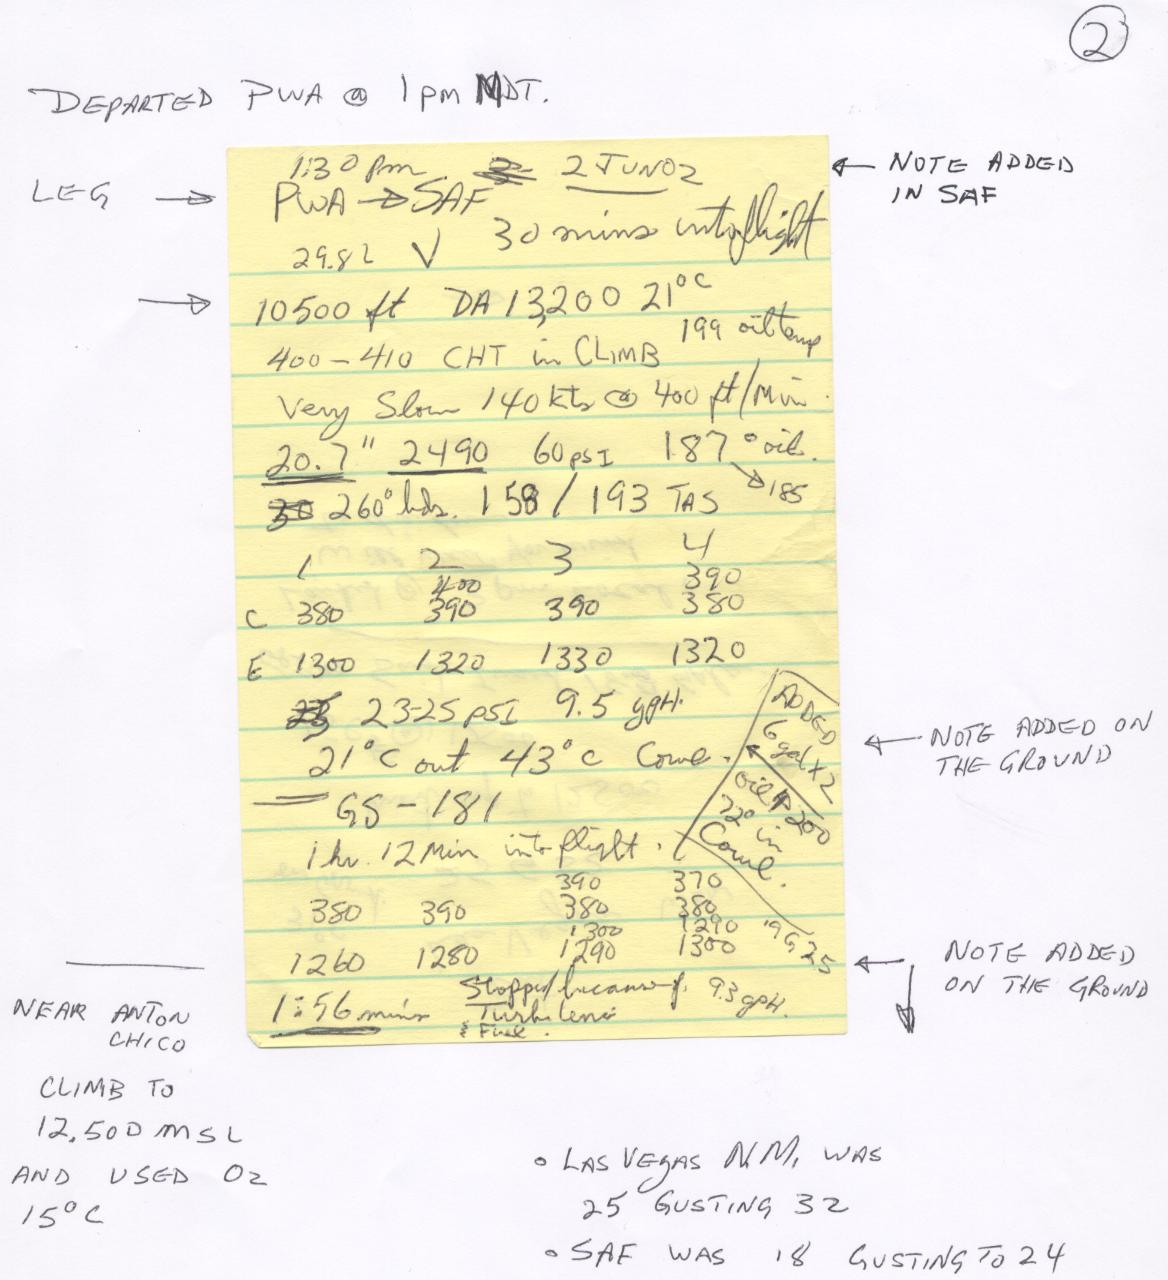 2
DEPARTED PWA @ 1pm MDT.
1:30 pm 2 JUN02
← NOTE ADDED
IN SAF
LEG →
PWA → SAF
30 mins into flight
29.82 V
→ 10500 ft DA 13,200 21°C
199 oil temp
400-410 CHT in CLIMB
Very Slow 140 kts @ 400 ft/Min.
20.7" 2490 60 psI 187° oil.
→ 185
260° hdg. 158 / 193 TAS
1 2 3 4
400 390
C 380 390 390 380
E 1300 1320 1330 1320
23-25 PSI 9.5 gpH.
ADDED
6
gal x 2
← NOTE ADDED ON
THE GROUND
21°C out 43°C Cowl.
oil 200
72° in
Cowl.
GS - 181
1 hr. 12 Min into flight.
390 370
380 390 380 380
1300 1290
1260 1280 1290 1300
19G25
← NOTE ADDED
ON THE GROUND
1:56 mins
Stopped because of
Turbulence
& Fuel.
9.3 gpH.
NEAR ANTON
CHICO
CLIMB TO
12,500 MSL
AND USED O2
15°C
• LAS VEGAS N.M. WAS
25 GUSTING 32
• SAF WAS 18 GUSTING TO 24